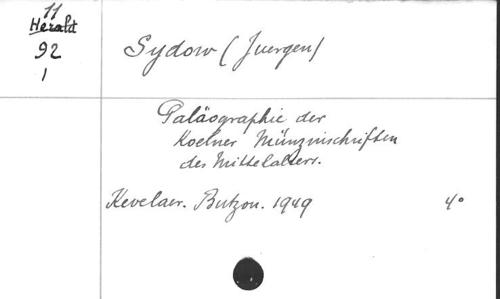 11
Herald
92
1
Sydow (Juergen)
Paläographie der
Koelner Münzinschriften
des Mittelalters.
Kevelaer. Butzon. 1949 4°